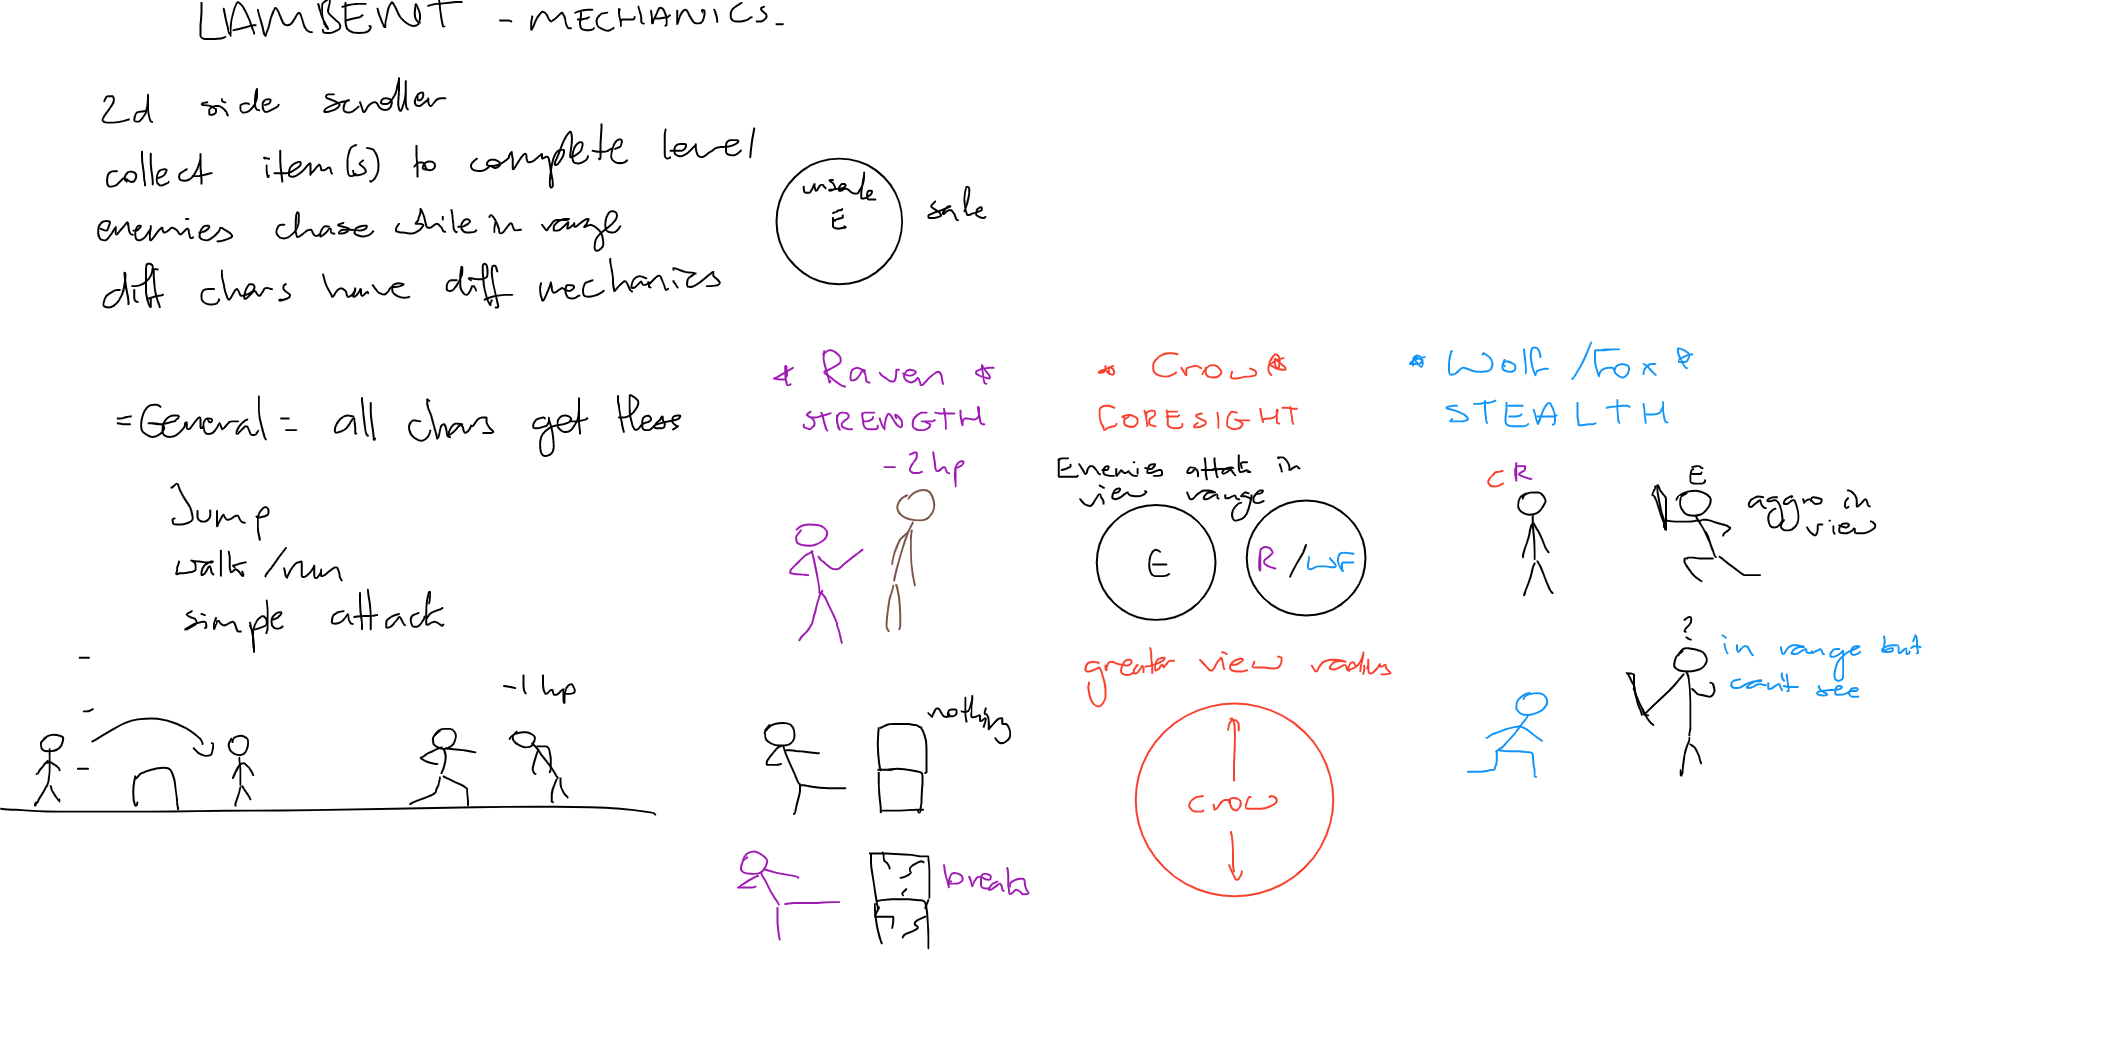 LAMBENT - MECHANICS.
2d side scroller
collect item(s) to complete level
enemies chase while in range
diff chars have diff mechanics
unsafe
E
safe
=General= all chars get these
Jump
walk/run
simple attack
-1 hp
* Raven *
STRENGTH
-2 hp
nothing
breaks
* Crow *
CORESIGHT
Enemies attack in
view range
E
R/WF
greater view radius
crow
* Wolf/Fox *
STEALTH
CR
E
aggro in
view
?
in range but
can't see